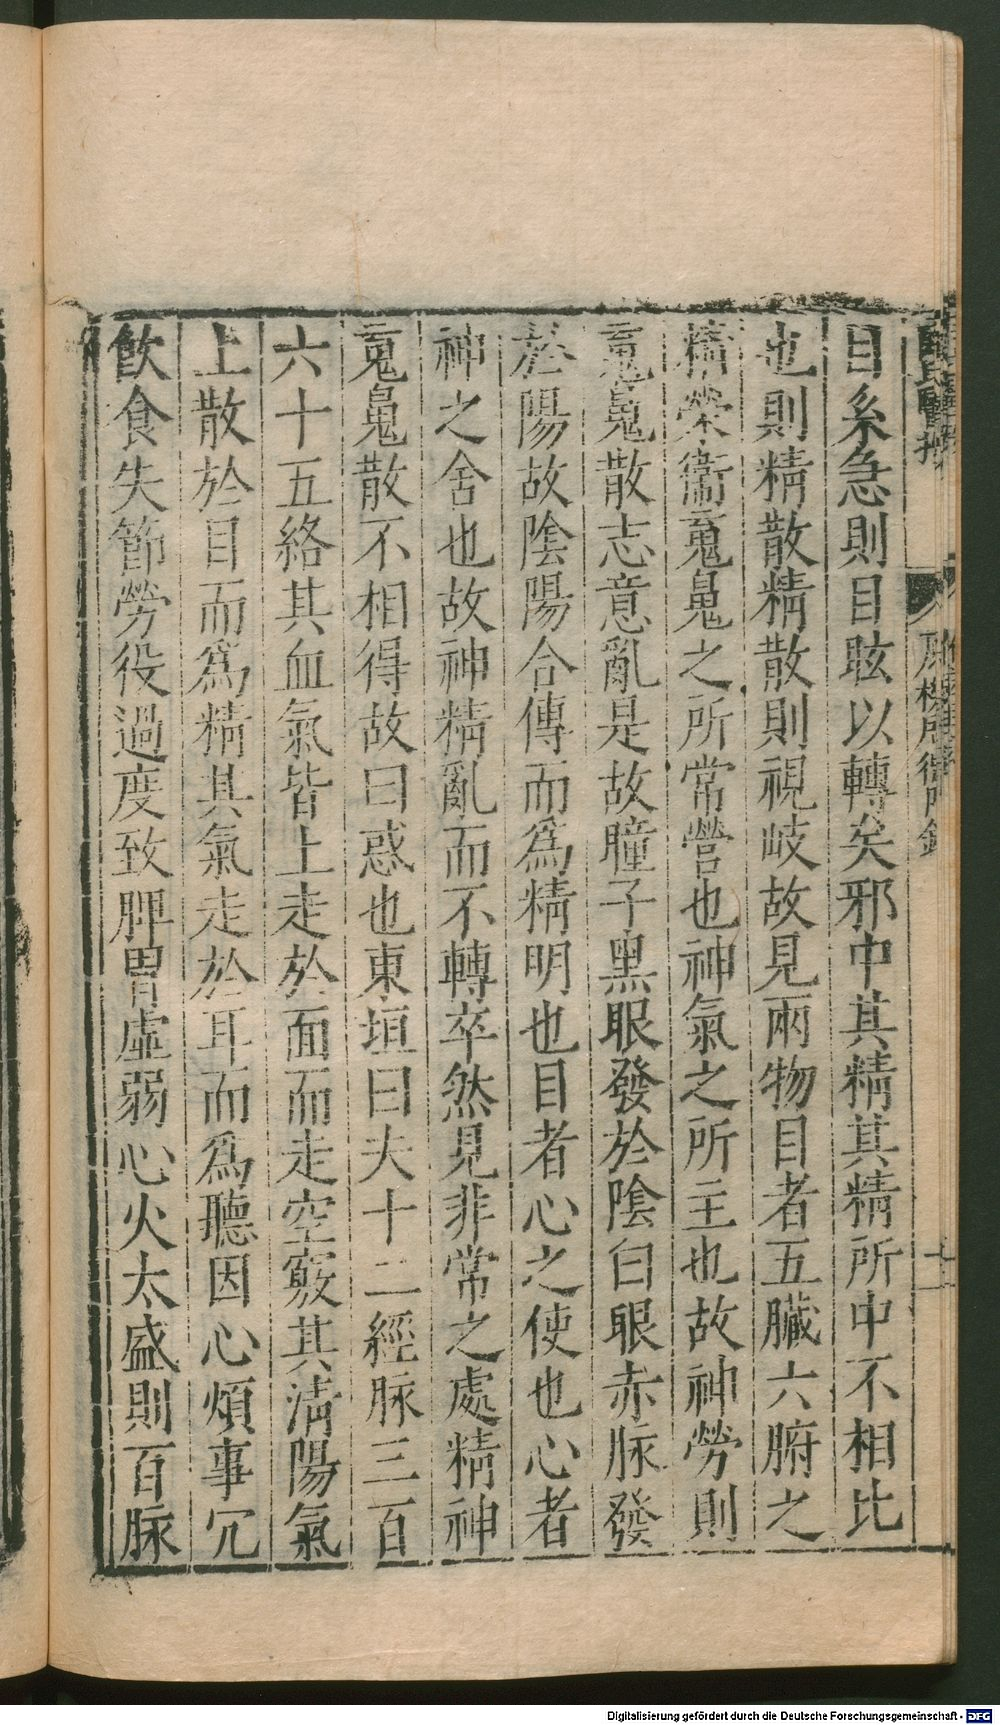 目系急則目眩以轉矣邪中其精其精所中不相比
也則精散精散則視岐故見兩物目者五臟六腑之
精榮衞䰟䰟之所常營也神氣之所主也故神勞則
䰟䰟散志意亂是故瞳子黑眼發於陰白眼赤脉發
於陽故陰陽合傳而爲精明也目者心之使也心者
神之舍也故神精亂而不轉卒然見非常之處精神
䰟䰟散不相得故曰惑也東垣曰夫十二經脉三百
六十五絡其血氣皆上走於面而走空竅其淸陽氣
上散於目而爲精其氣走於耳而爲聽因心煩事冗
飲食失節勞役過度致脾胃虛弱心火太盛則百脉
Digitalisierung gefördert durch die Deutsche Forschungsgemeinschaft - DFG